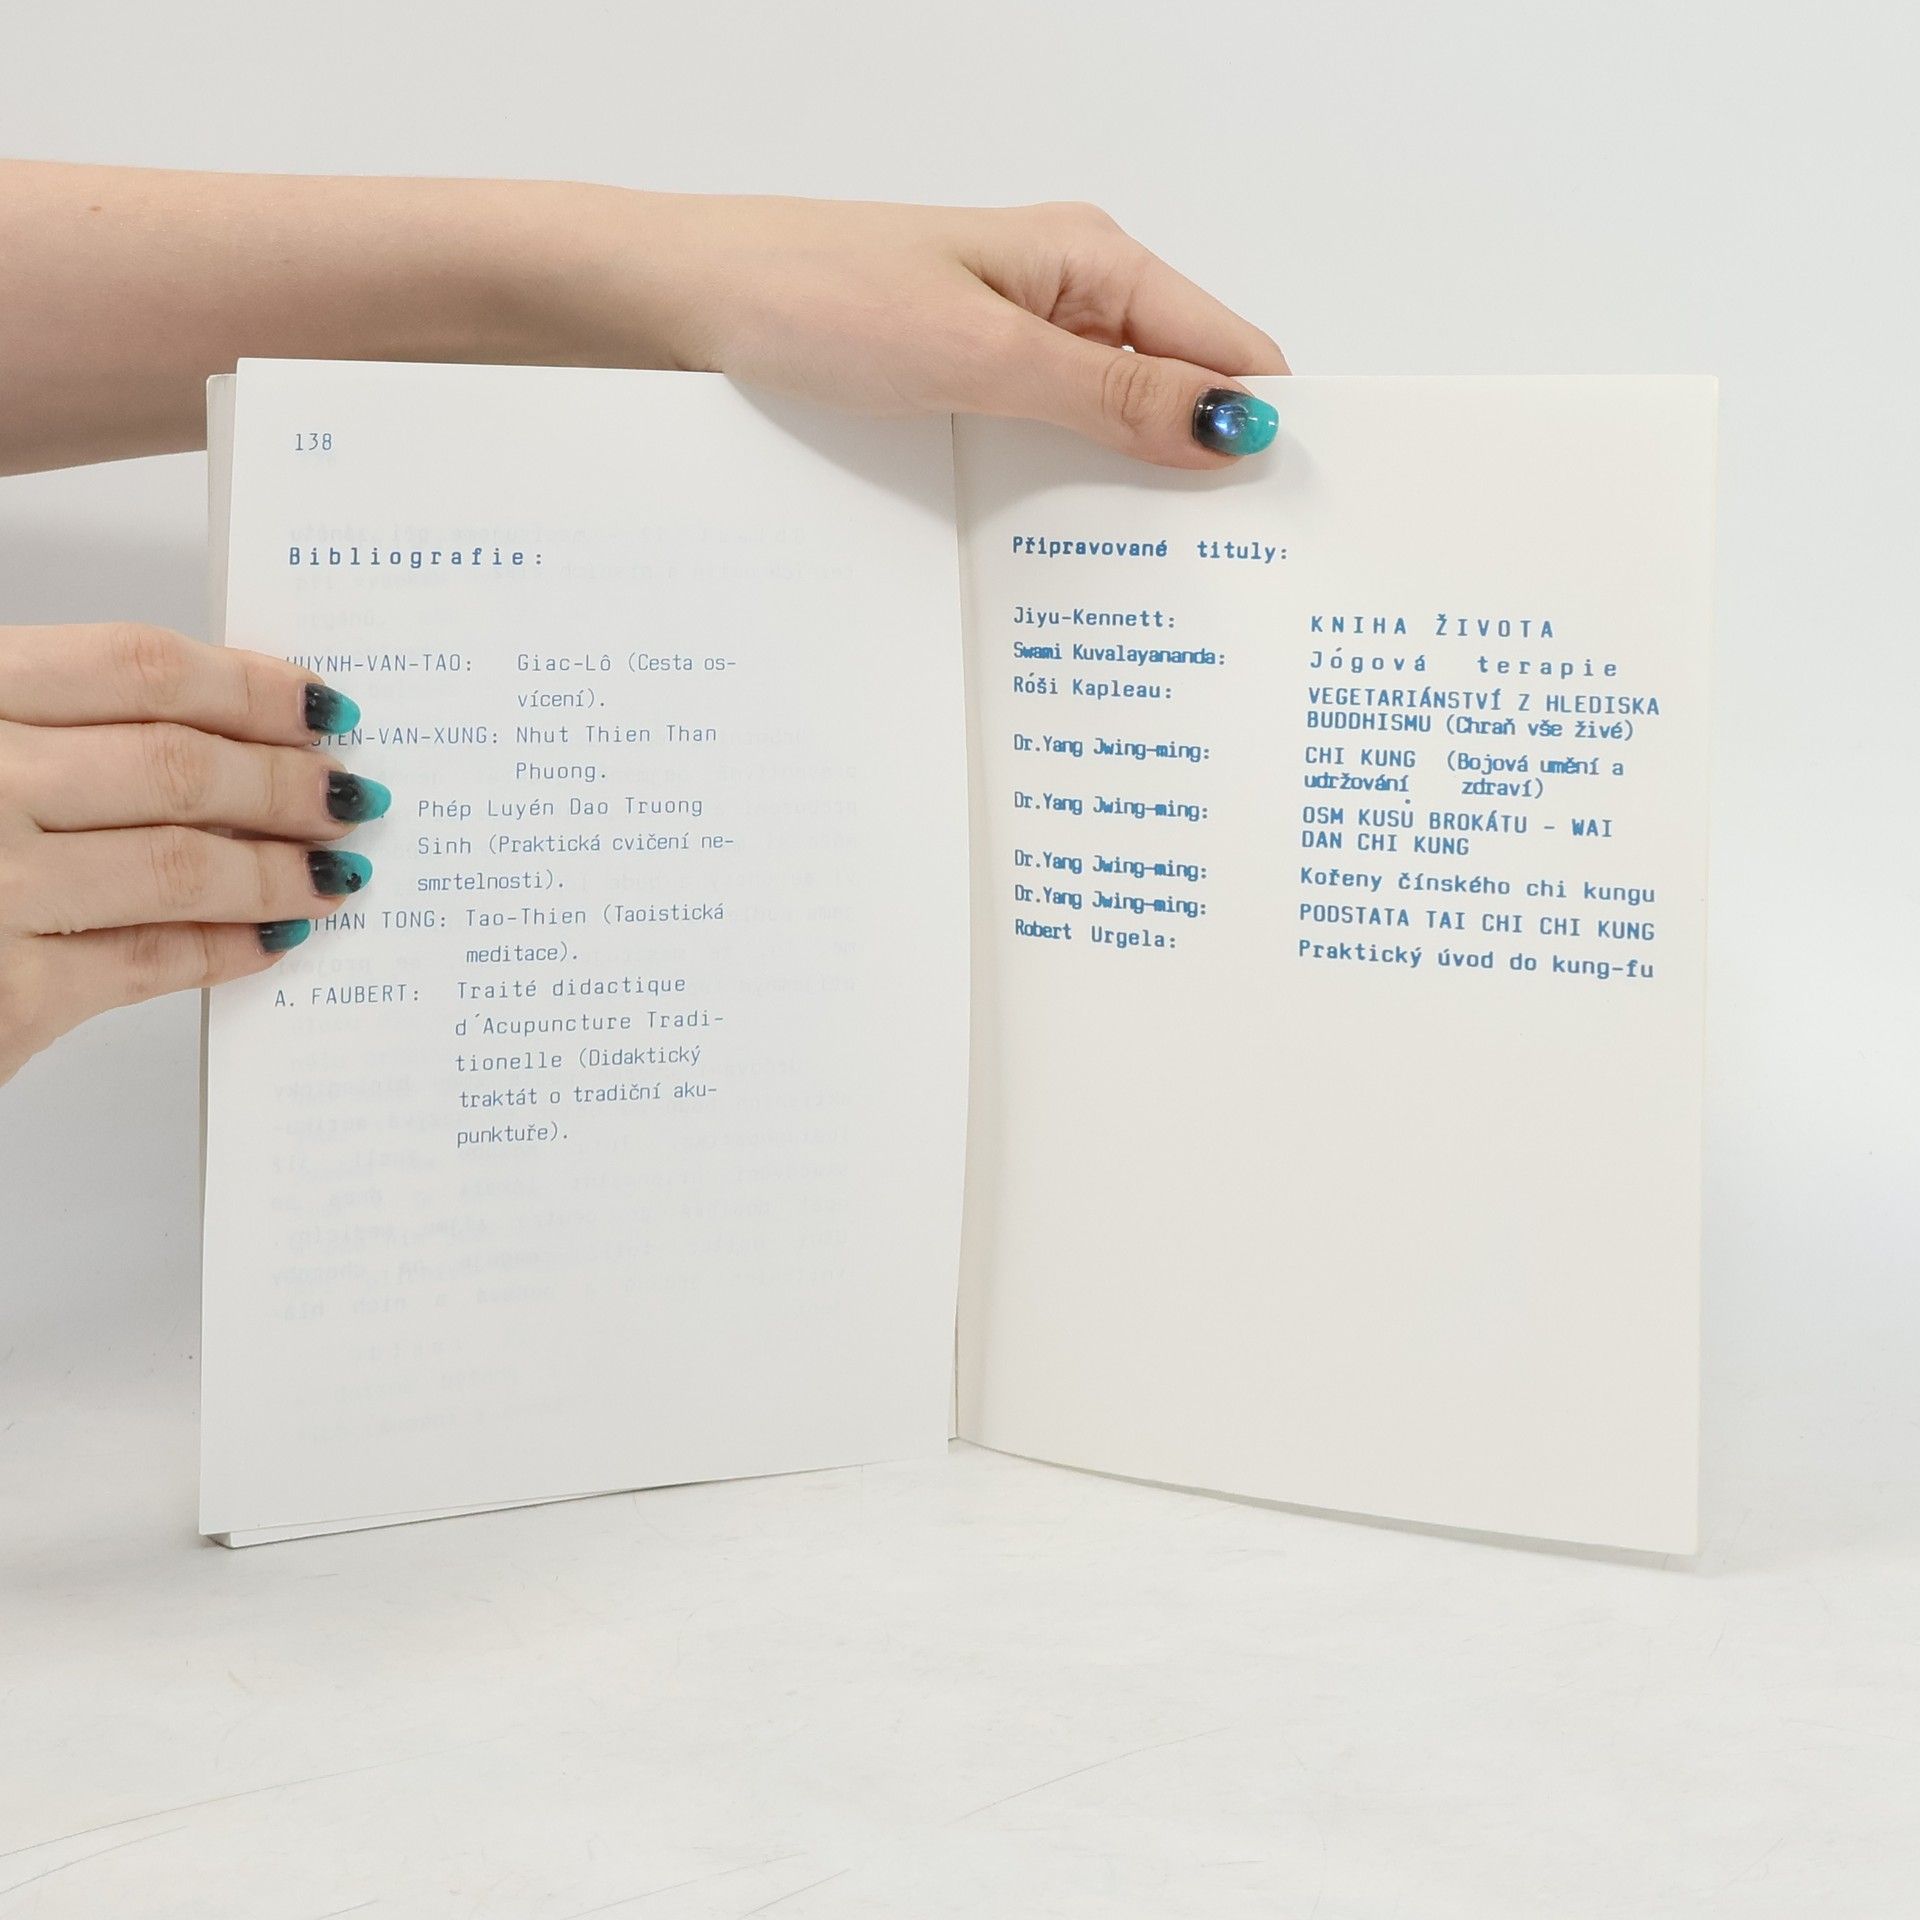 138
Bibliografie:
HUYNH-VAN-TAO: Giac-Lô (Cesta os-
vícení).
-VAN-XUNG: Nhut Thien Than
Phuong.
Phép Luyén Dao Truong
Sinh (Praktická cvičení ne-
smrtelnosti).
THAN TONG: Tao-Thien (Taoistická
meditace).
A. FAUBERT: Traité didactique
d´Acupuncture Tradi-
tionelle (Didaktický
traktát o tradiční aku-
punktuře).
Připravované tituly:
Jiyu-Kennett: KNIHA ŽIVOTA
Swami Kuvalayananda: Jógová terapie
Róši Kapleau: VEGETARIÁNSTVÍ Z HLEDISKA
BUDDHISMU (Chraň vše živé)
Dr.Yang Jwing-ming: CHI KUNG (Bojová umění a
udržování zdraví)
Dr.Yang Jwing-ming: OSM KUSŮ BROKÁTU - WAI
DAN CHI KUNG
Dr.Yang Jwing-ming: Kořeny čínského chi kungu
Dr.Yang Jwing-ming: PODSTATA TAI CHI CHI KUNG
Robert Urgela: Praktický úvod do kung-fu